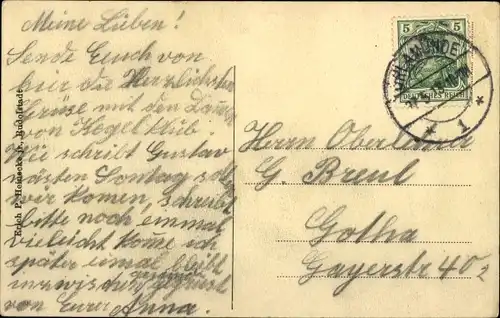 Meine Lieben!
Sende Euch von
hier die Herzlichsten
Grüse mit den
von Kegelklub.
Wie schribt Gustav
nästen Sontag
wir komen, schreibt
bitte noch einmal
vieleicht kome ich
später einmal bleibt
inzwischen gegrüst
von Eurer Anna.
Erich P. Heinecke Rudolstadt
5 5
DEUTSCHES REICH
ORLAMÜNDE
* 1 *
Herrn Oberlehrer
G. Breul
Gotha
Gayerstr 40 2